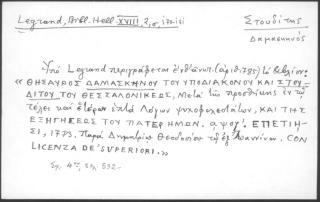 Legrand, Bibl. Hell. XVIII, 2, σ, 130-131
Στουδίτης
Δαμασκηνός
Ὑπὸ Legrand περιγράφεται ἐνθ' ἀνωτ. (ἀριθ. 785) τὸ βιβλίον:
« ΘΗΣΑΥΡΟΣ ΔΑΜΑΣΚΗΝΟΥ ΤΟΥ ΥΠΟΔΙΑΚΟΝΟΥ ΚΑΙ ΣΤΟΥ-
ΔΙΤΟΥ ΤΟΥ ΘΕΣΣΑΛΟΝΙΚΕΩΣ, μετὰ τῆς προσθήκης ἐν τῷ
τέλει καὶ ἑτέρων ἑπτὰ Λόγων ψυχωφελεστάτων, ΚΑΙ ΤΗΣ
ΕΞΗΓΗΣΕΩΣ ΤΟΥ ΠΑΤΕΡ ΗΜΩΝ. αψογ΄. ΕΝΕΤΙΗ-
ΣΙ, 1773. Παρὰ Δημητρίῳ Θεοδοσίου τῷ ἐξ Ἰωαννίνων. CON
LICENZA DE' SUPERIORI. »
Σχ. 4ον, σελ. 592 -